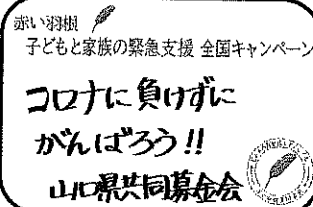 赤い羽根
子どもと家族の緊急支援 全国キャンペーン
コロナに負けずに
がんばろう!!
山口県共同募金会